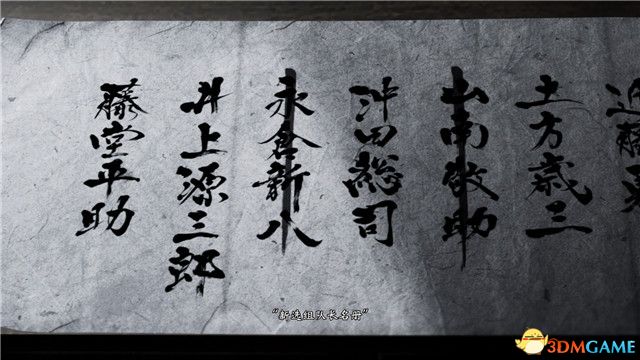 近藤
土方歳三
山南敬助
沖田総司
永倉新八
井上源三郎
藤堂平助
“新选组队长名册”
3DMGAME